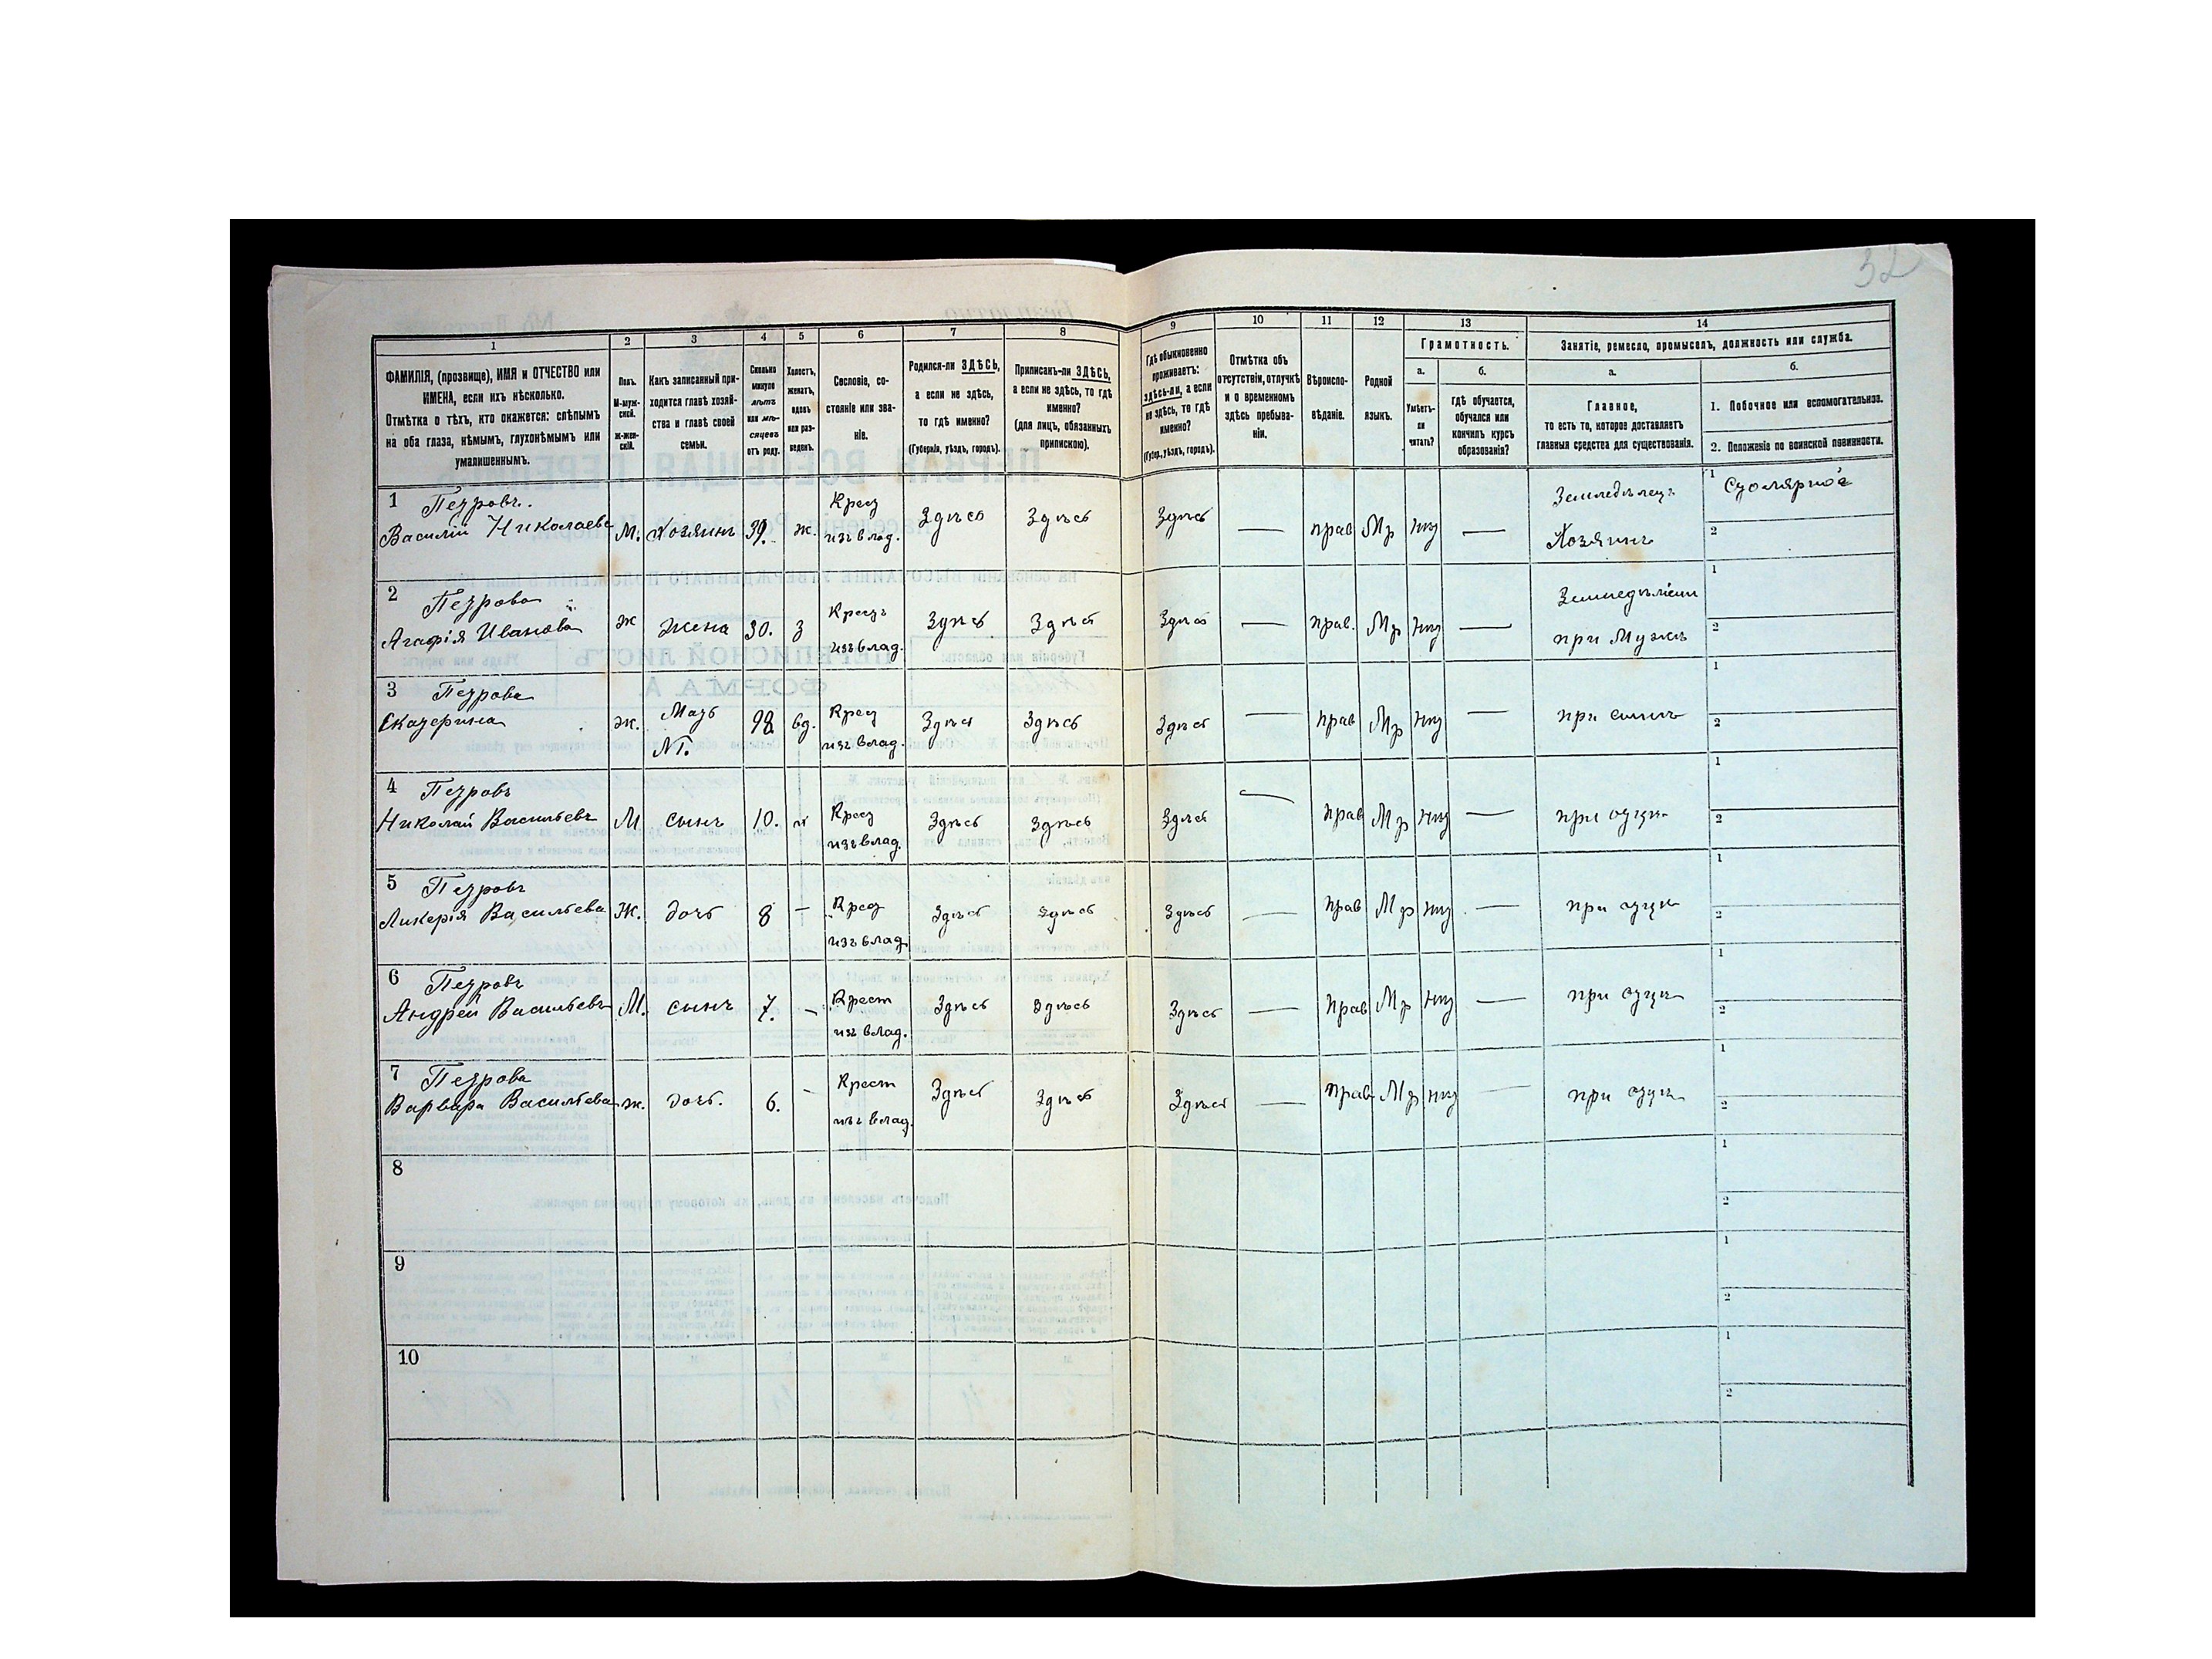 32
1 2 3 4 5 6 7 8 9 10 11 12 13 14
ФАМИЛІЯ, (прозвище), ИМЯ и ОТЧЕСТВО или
ИМЕНА, если ихъ нѣсколько.
Отмѣтка о тѣхъ, кто окажется: слѣпымъ
на оба глаза, нѣмымъ, глухонѣмымъ или
умалишеннымъ.
Полъ.
М-муж-
ской.
Ж-жен-
скій.
Какъ записанный при-
ходится главѣ хозяй-
ства и главѣ своей
семьи.
Сколько
минуло
лѣтъ
или мѣ-
сяцевъ
отъ роду.
Холостъ,
женатъ,
вдовъ
или раз-
веденъ.
Сословіе, со-
стояніе или зва-
ніе.
Родился-ли ЗДѢСЬ,
а если не здѣсь,
то гдѣ именно?
(Губернія, уѣздъ, городъ).
Приписанъ-ли ЗДѢСЬ,
а если не здѣсь, то гдѣ
именно?
(для лицъ, обязанныхъ
припискою).
Гдѣ обыкновенно
проживаетъ:
здѣсь-ли, а если
не здѣсь, то гдѣ
именно?
(Губер., уѣздъ, городъ).
Отмѣтка объ
отсутствіи, отлучкѣ
и о временномъ
здѣсь пребыва-
ніи.
Вѣроиспо-
вѣданіе.
Родной
языкъ.
Грамотность.
а.
Умѣетъ-
ли
читать?
б.
гдѣ обучается,
обучался или
кончилъ курсъ
образованія?
Занятіе, ремесло, промыселъ, должность или служба.
а.
Главное,
то есть то, которое доставляетъ
главныя средства для существованія.
б.
1. Побочное или вспомогательное.
2. Положеніе по воинской повинности.
1 Петровъ. Крест Земледѣлецъ 1 Столярное
Василій Николаевъ М. Хозяинъ 39. ж. изъ влад. Здѣсь Здѣсь Здѣсь — прав Мр нѣт — Хозяинъ 2
2 Петрова Крестъ Земледѣліем 1
Агафія Иванова Ж Жена 30. з изъ влад. Здѣсь Здѣсь Здѣсь — прав. Мр нѣт — при Мужѣ 2
3 Петрова Мать Крест 1
Екатерина ж. №1. 98 вд. изъ влад. Здѣсь Здѣсь Здѣсь — прав Мр нѣт — при сынѣ 2
4 Петровъ Крест 1
Николай Васильевъ М сынъ 10. изъ влад. Здѣсь Здѣсь Здѣсь — прав Мр нѣт — при отцѣ 2
5 Петровъ Крест 1
Ликерія Васильева Ж. дочь 8 — изъ влад Здѣсь Здѣсь Здѣсь — прав Мр нѣт — при отцѣ 2
6 Петровъ Крест 1
Андрей Васильевъ М. сынъ 7. — изъ влад. Здѣсь Здѣсь Здѣсь — прав Мр нѣт — при отцѣ 2
7 Петрова Крест 1
Варвара Васильева ж. дочь. 6. — изъ влад. Здѣсь Здѣсь Здѣсь — прав Мр нѣт — при отцѣ 2
8 1
2
9 1
2
10 1
2